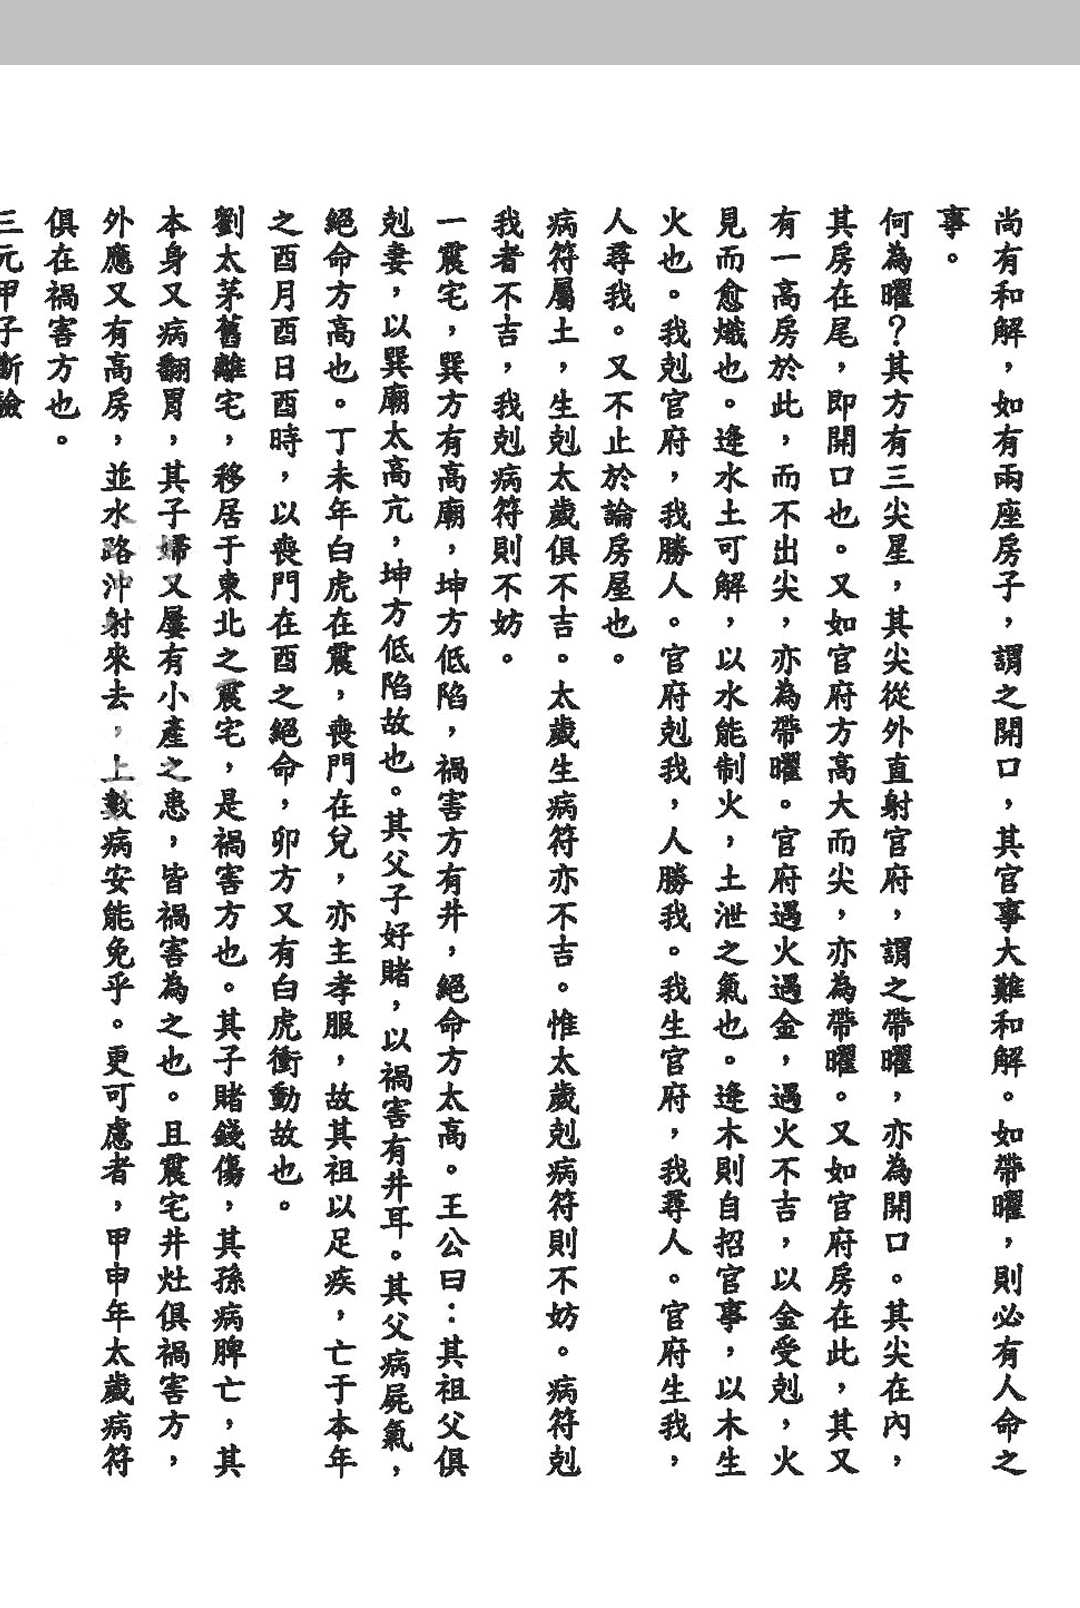 尚有和解，如有兩座房子，謂之開口，其官事大難和解。如帶曜，則必有人命之
事。
何為曜？其方有三尖星，其尖從外直射官府，謂之帶曜，亦為開口。其尖在內，
其房在尾，即開口也。又如官府方高大而尖，亦為帶曜。又如官府房在此，其又
有一高房於此，而不出尖，亦為帶曜。官府遇火遇金，遇火不吉，以金受剋，火
見而愈熾也。逢水土可解，以水能制火，土泄之氣也。逢木則自招官事，以木生
火也。我剋官府，我勝人。官府剋我，人勝我。我生官府，我尋人。官府生我，
人尋我。又不止於論房屋也。
病符屬土，生剋太歲俱不吉。太歲生病符亦不吉。惟太歲剋病符則不妨。病符剋
我者不吉，我剋病符則不妨。
一震宅，巽方有高廟，坤方低陷，禍害方有井，絕命方太高。王公曰：其祖父俱
剋妻，以巽廟太高亢，坤方低陷故也。其父子好賭，以禍害有井耳。其父病屍氣，
絕命方高也。丁未年白虎在震，喪門在兌，亦主孝服，故其祖以足疾，亡于本年
之酉月酉日酉時，以喪門在酉之絕命，卯方又有白虎衝動故也。
劉太茅舊離宅，移居于東北之震宅，是禍害方也。其子賭錢傷，其孫病脾亡，其
本身又病翻胃，其子婦又屢有小產之患，皆禍害為之也。且震宅井灶俱禍害方，
外應又有高房，並水路沖射來去，上數病安能免乎。更可慮者，甲申年太歲病符
俱在禍害方也。
三元甲子斷驗